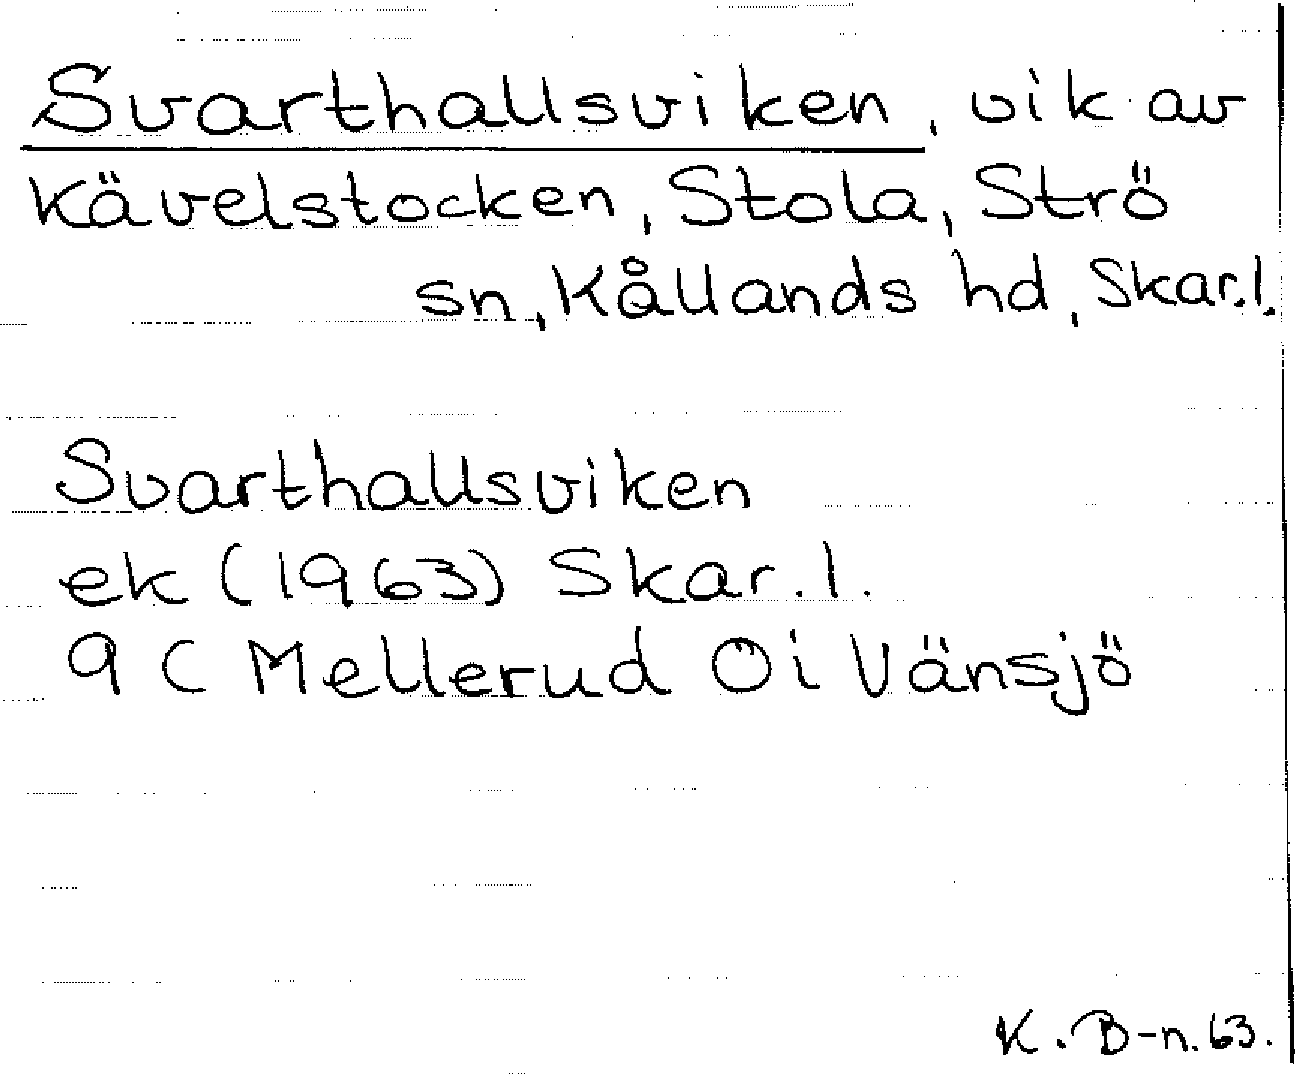 Svarthallsviken, vik av
Kävelstocken, Stola, Strö
sn, Kållands hd, Skar.l.
Svarthallsviken
ek (1963) Skar.l.
9 C Mellerud Ö i Vänsjö
K.B-n.63.